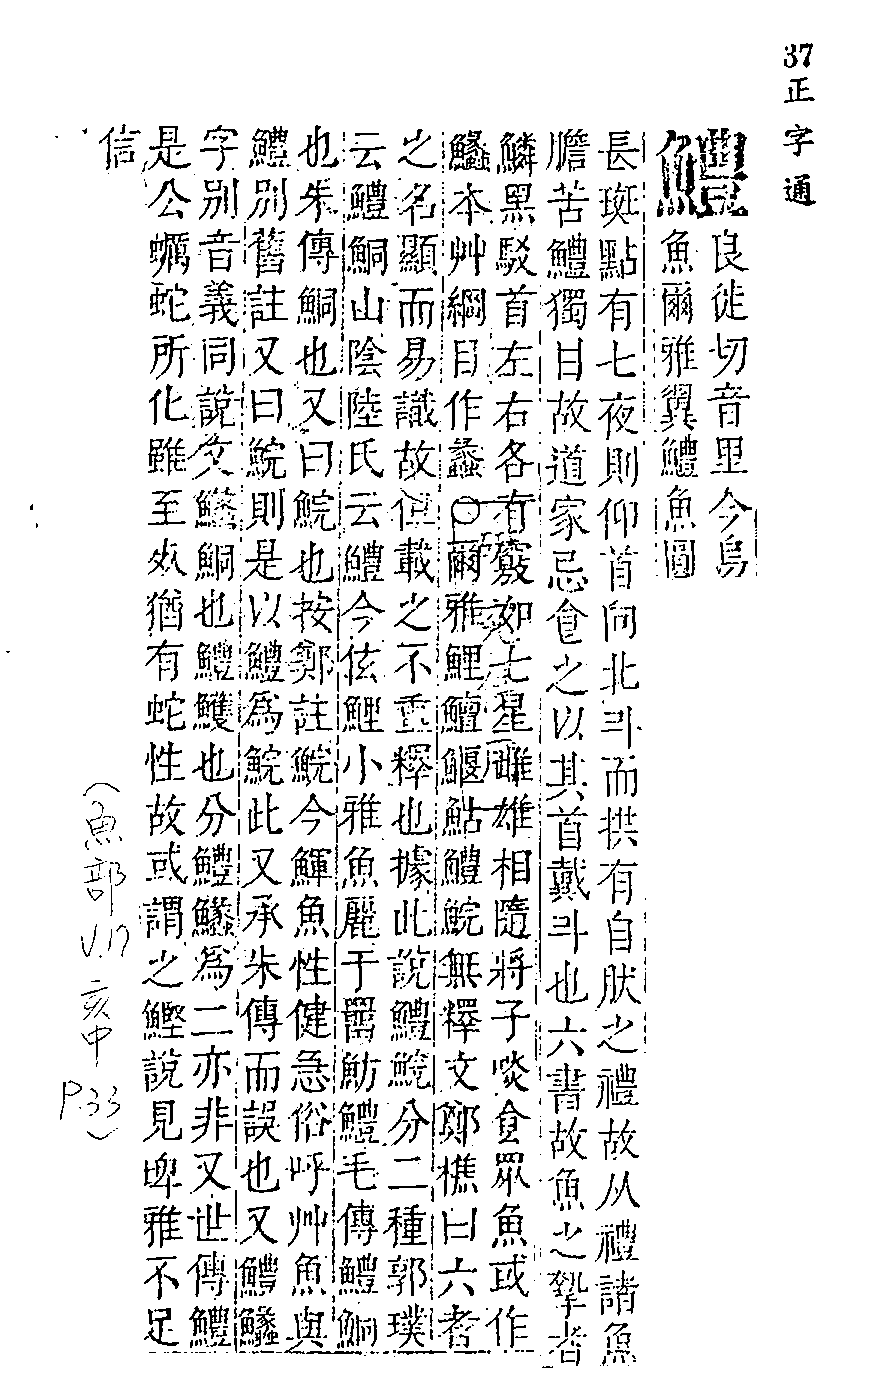 37正字通
鱧
良徙切音里今烏
魚爾雅翼鱧魚圓
長斑點有七夜則仰首向北斗而拱有自肰之禮故从禮諸魚
膽苦鱧獨甘故道家忌食之以其首戴斗也六書故魚之摯者
鱗黑駁首左右各有竅如七星雌雄相隨將子啖食眾魚或作
鱻本艸綱目作蠡○爾雅鯉鱣鰋鮎鱧鯇無釋文鄭樵曰六者
之名顯而易識故但載之不重釋也據此說鱧鯇分二種郭璞
云鱧鮦山陰陸氏云鱧今伭鯉小雅魚麗于罶魴鱧毛傳鱧鮦
也朱傳鮦也又曰鯇也按鄭註鯇今鯶魚性健急俗呼艸魚與
鱧別舊註又曰鯇則是以鱧為鯇此又承朱傳而誤也又鱧鱺
字別音義同說文鱺鮦也鱧鱯也分鱧鱺為二亦非又世傳鱧
是公蠣蛇所化雖至死猶有蛇性故或謂之鰹說見埤雅不足
信
(魚部 V.17 亥中 P.33)